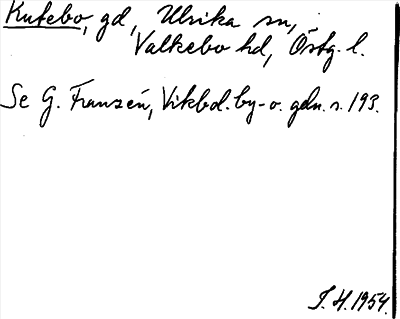 Kutebo, gd, Ulrika sn,
Valkebo hd, Östg. l.
Se G. Franzén, Vikbol. by- o. gdn. s. 193.
I. H. 1954.